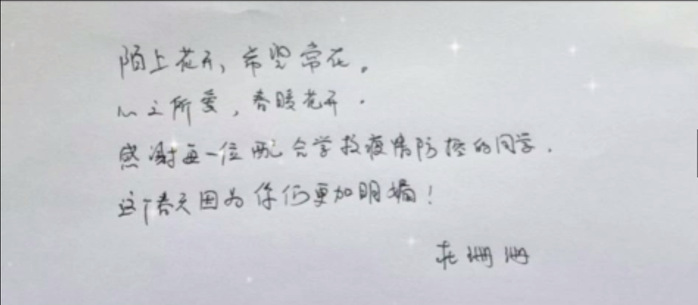 陌上花开，希望常在。
心之所爱，春暖花开.
感谢每一位配合学校疫情防控的同学.
这个春天因为你们更加明媚！
珊珊